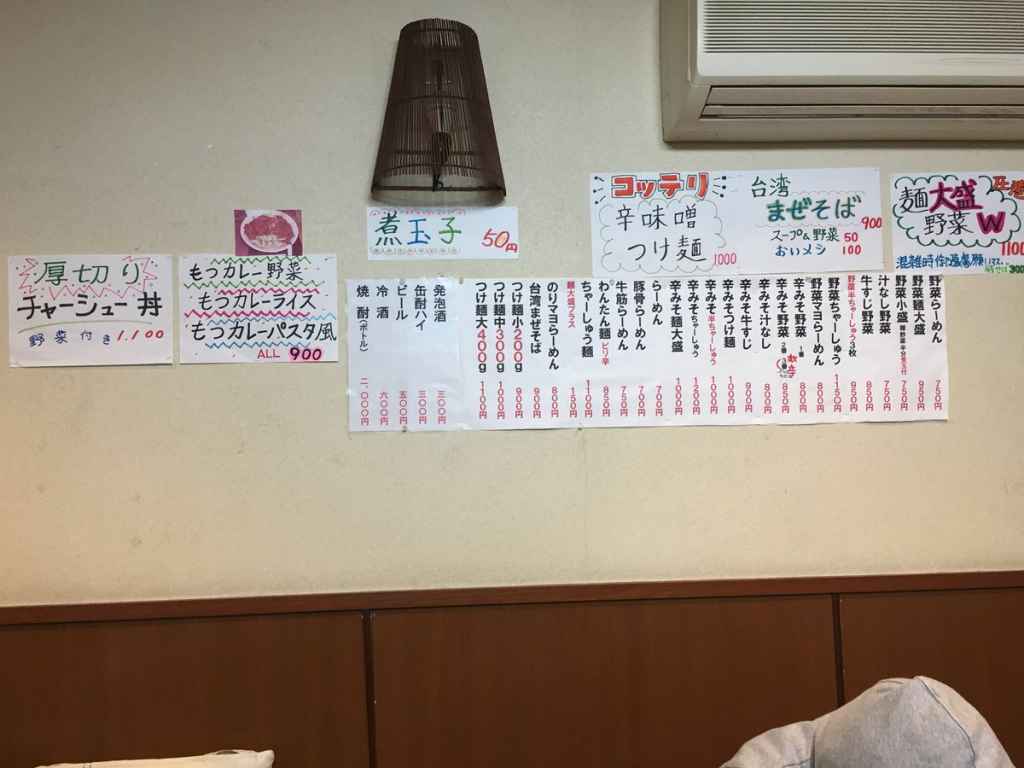 厚切り
チャーシュー丼
野菜付き 1.100
もつカレー野菜
もつカレーライス
もつカレーパスタ風
ALL 900
煮玉子 50円
コッテリ
辛味噌
つけ麺 1000
台湾
まぜそば 900
スープ&野菜 50
おいメシ 100
麺大盛
野菜W
1100
野菜らーめん 750円
野菜麺大盛 950円
野菜小盛 750円
汁なし野菜 750円
牛すじ野菜 850円
野菜半ちゃーしゅう3枚 950円
野菜ちゃーしゅう 1150円
野菜マヨらーめん 800円
辛みそ野菜 800円
辛みそ野菜 850円
辛みそ汁なし 800円
辛みそ牛すじ 900円
辛みそつけ麺 1000円
辛みそ半ちゃーしゅう 1000円
辛みそちゃーしゅう 1200円
辛みそ麺大盛 1000円
らーめん 700円
豚骨らーめん 700円
牛筋らーめん 750円
わんたん麺ピリ辛 850円
ちゃーしゅう麺 1100円
麺大盛プラス 150円
のりマヨらーめん 800円
台湾まぜそば 900円
つけ麺小200g 900円
つけ麺中300g 1000円
つけ麺大400g 1100円
発泡酒 三〇〇円
缶酎ハイ 三〇〇円
ビール 五〇〇円
冷酒 六〇〇円
焼酎(ボトル) 二、〇〇〇円